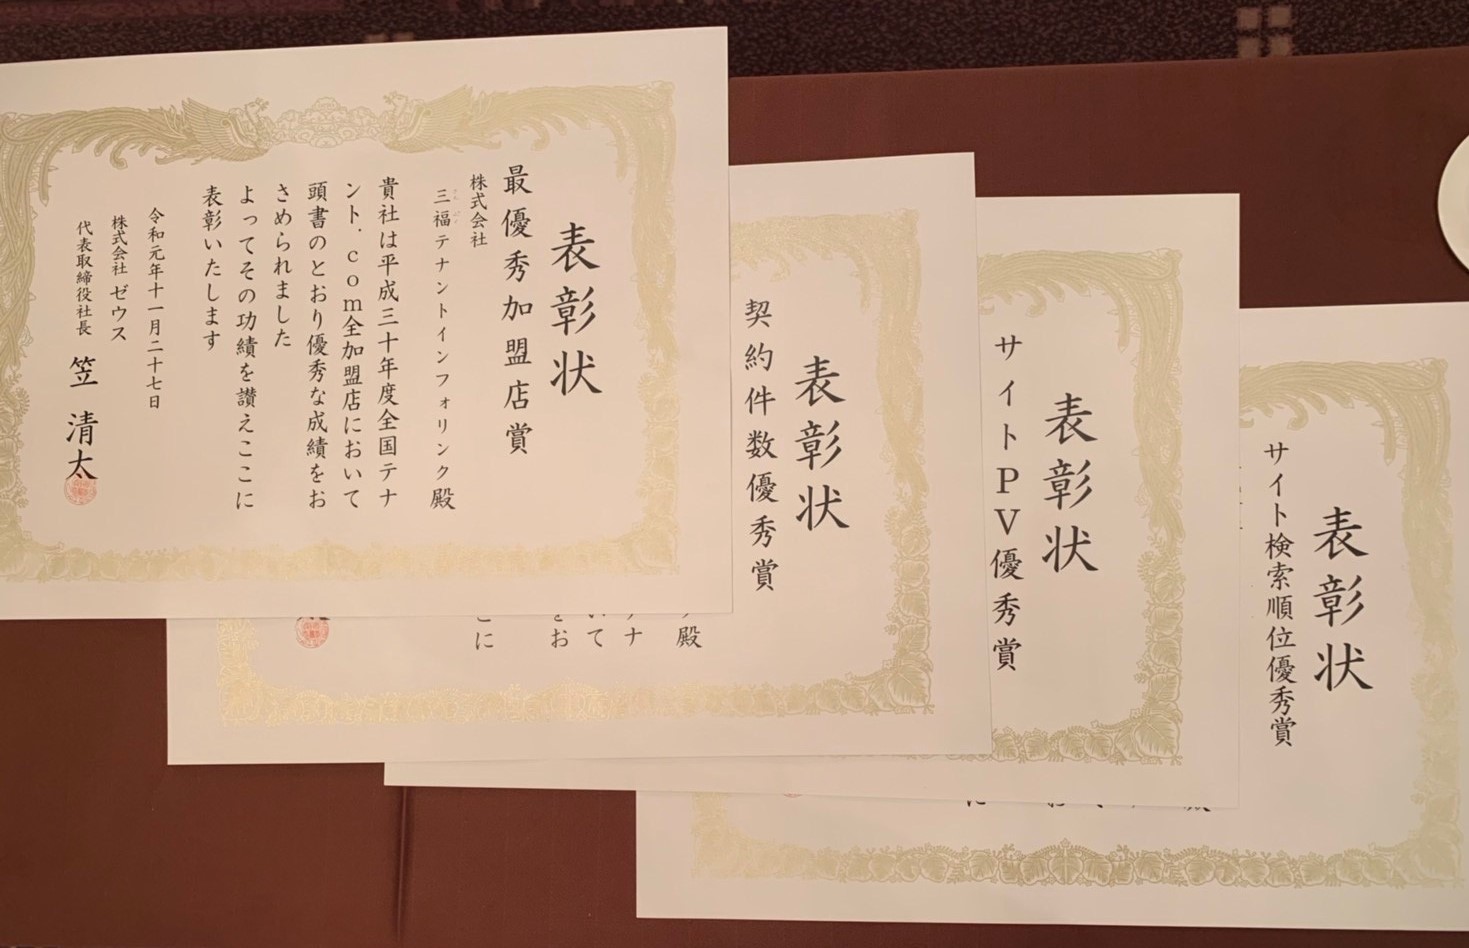 表彰状
最優秀加盟店賞
株式会社
三福テナントインフォリンク殿
貴社は平成三十年度全国テナ
ント.com全加盟店において
頭書のとおり優秀な成績をお
さめられました
よってその功績を讃えここに
表彰いたします
令和元年十一月二十七日
株式会社 ゼウス
代表取締役社長 笠 清太
表彰状
契約件数優秀賞
殿
ナ
いて
をお
こに
表彰状
サイトPV優秀賞
表彰状
サイト検索順位優秀賞